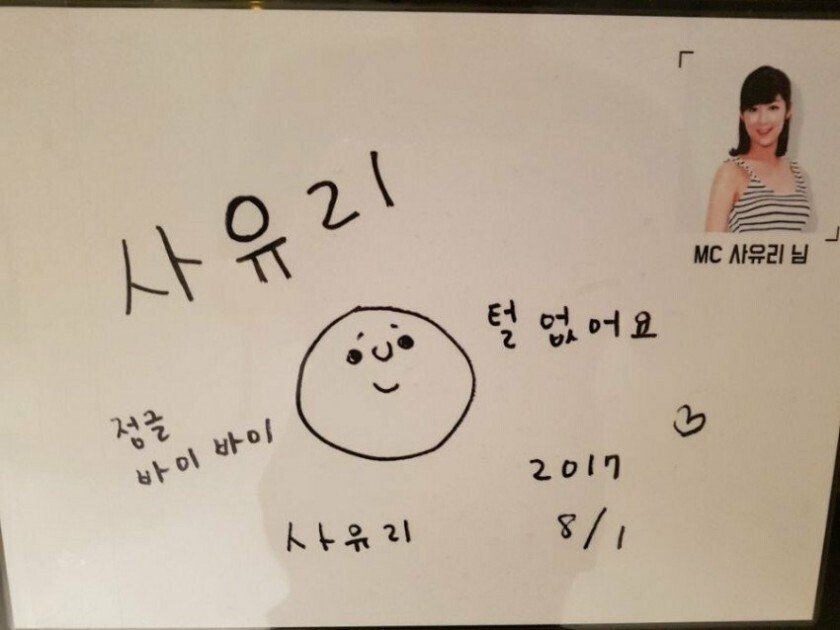 MC 사유리 님
사유리
털 없어요
정글
바이 바이
2017
8/1
사유리